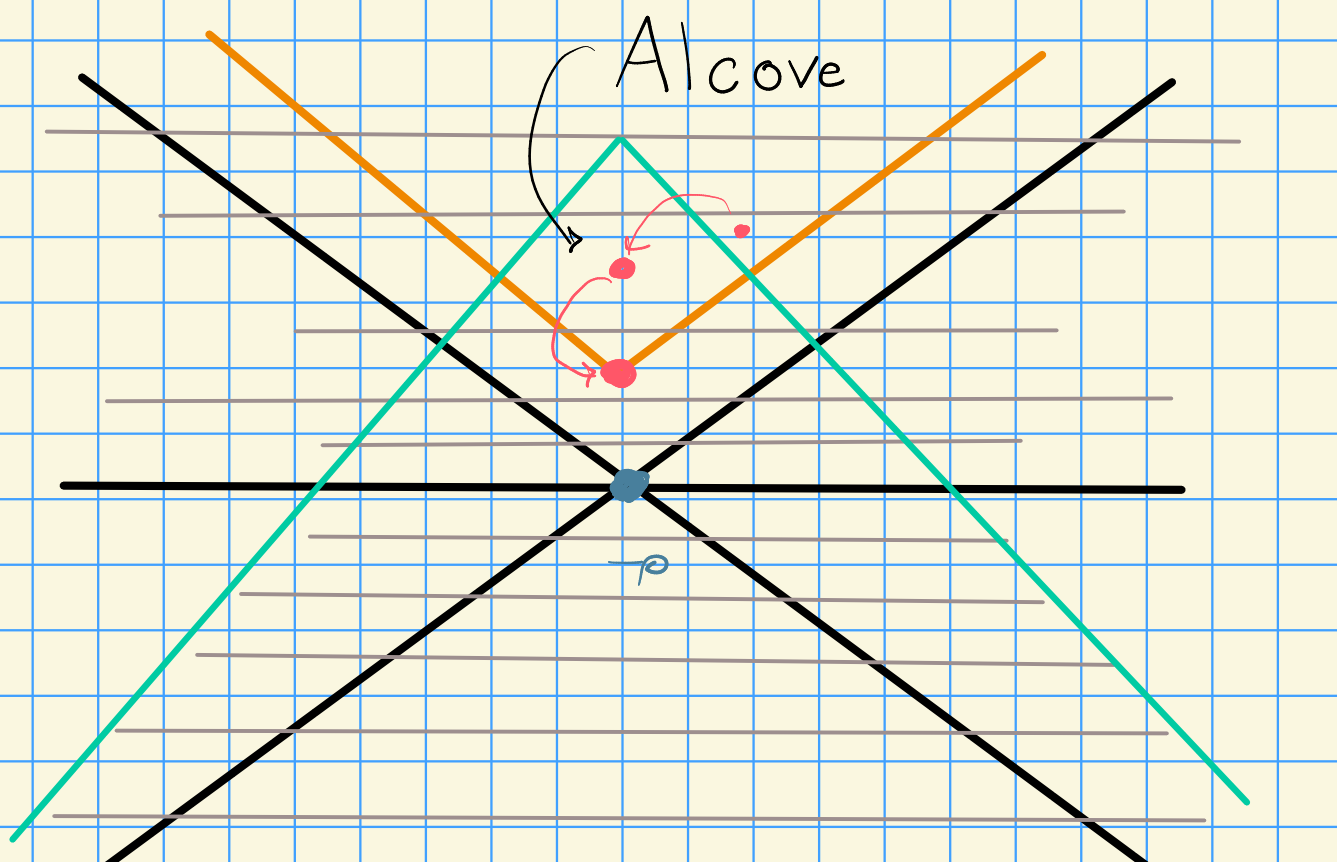 Alcove
-ρ